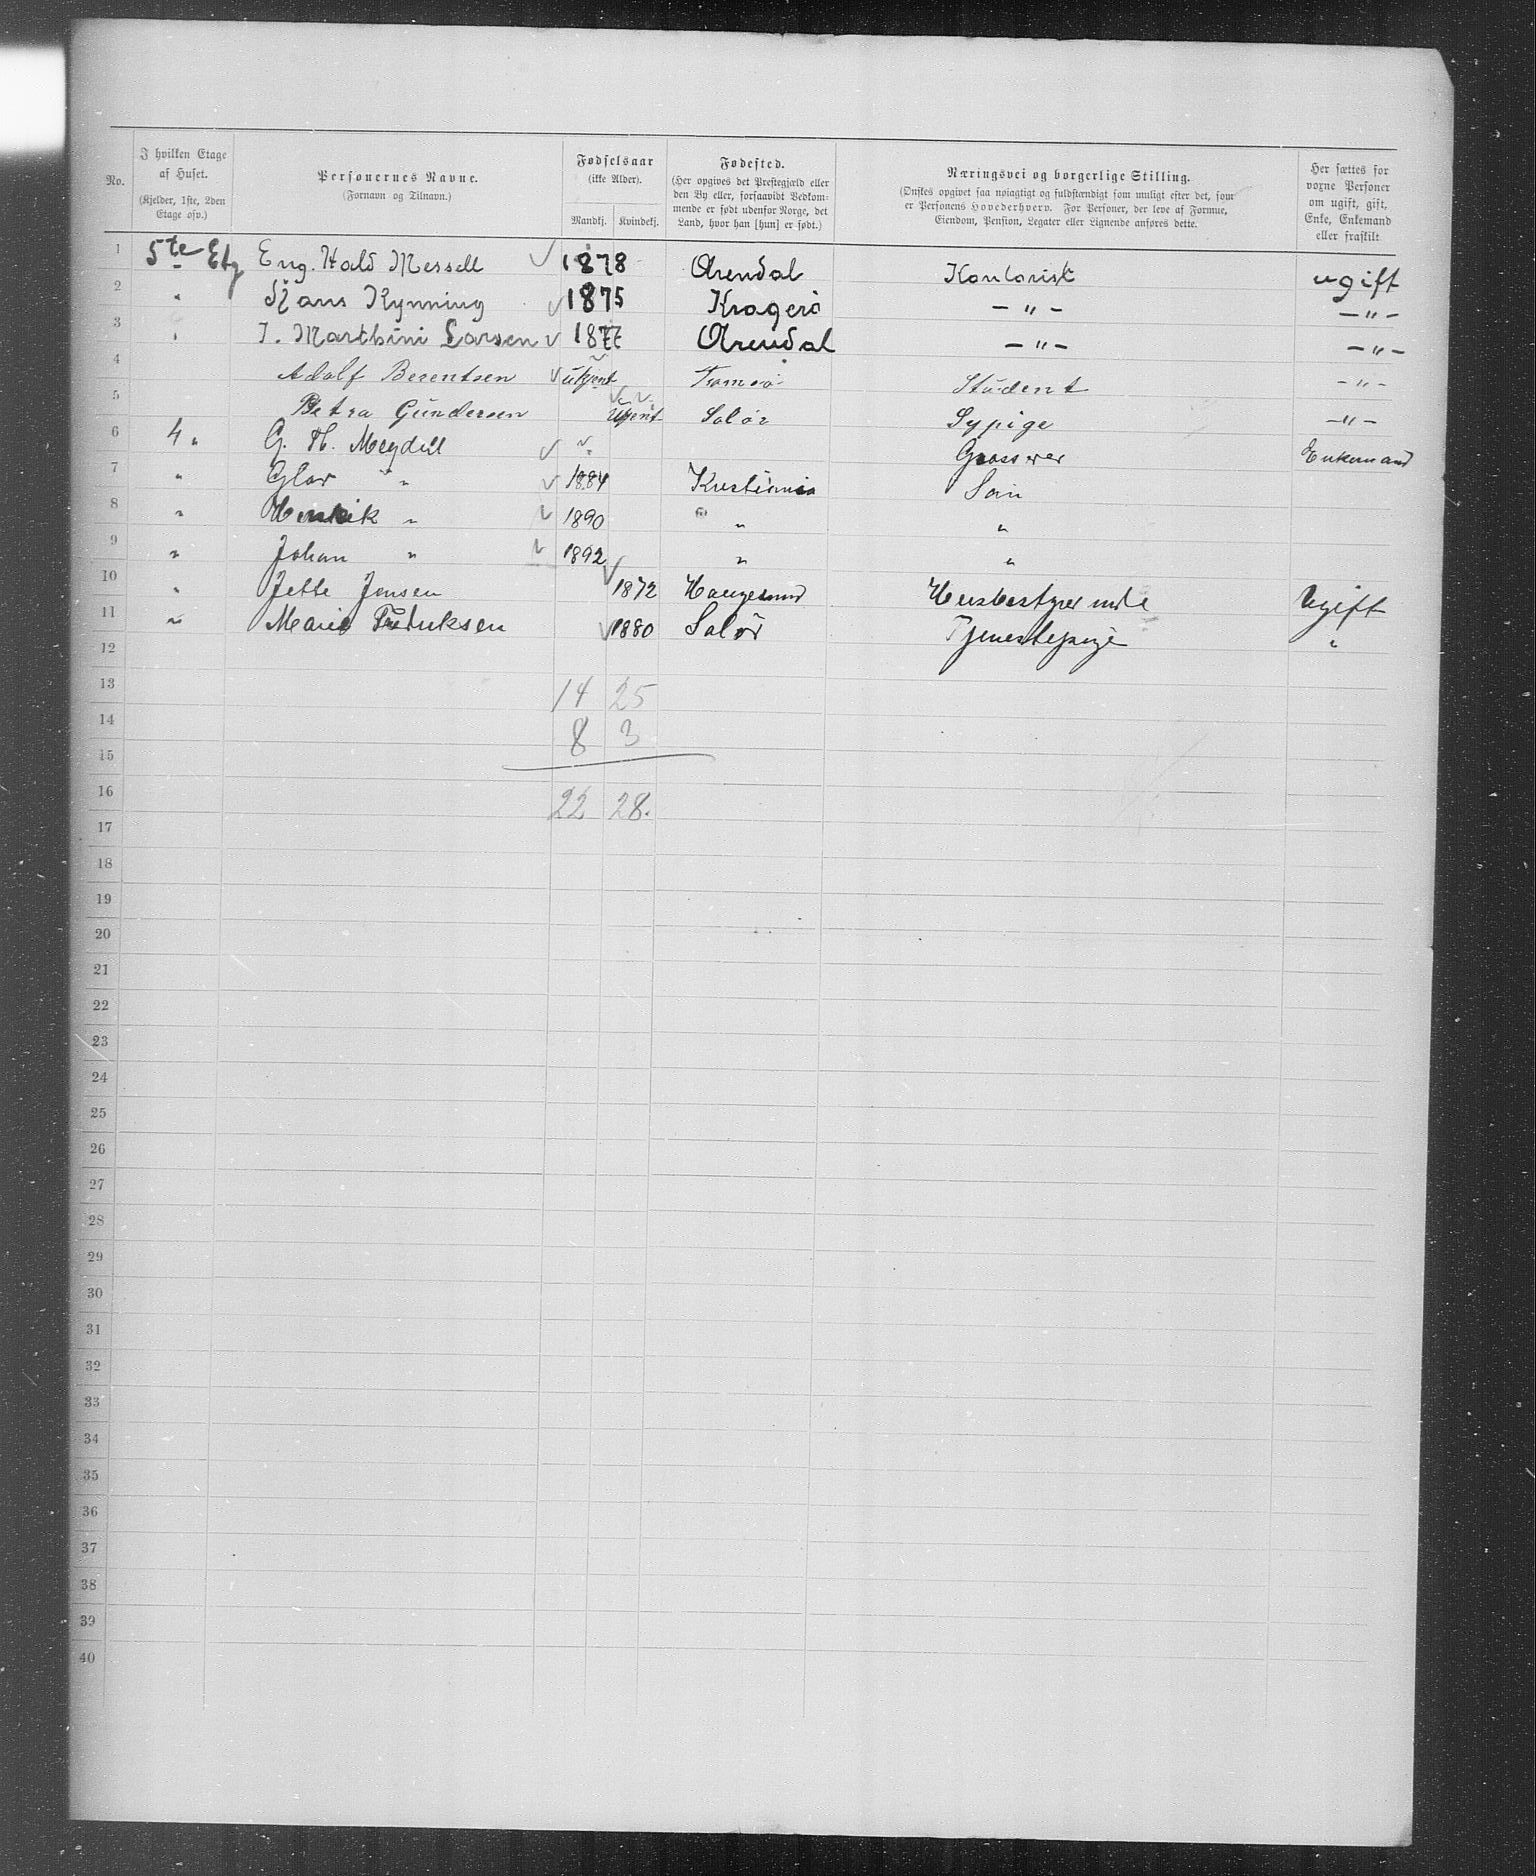 No. I hvilken Etage af Huset. (Kjelder, 1ste, 2den Etage osv.) Personernes Navne. (Fornavn og Tilnavn.) Fødselsaar (ikke Alder). Mandkj. Kvindekj. Fødested. (Her opgives det Prestegjæld eller den By eller, forsaavidt Vedkommende er født udenfor Norge, det Land, hvor han [hun] er født.) Næringsvei og borgerlige Stilling. (Ønskes opgivet saa nøiagtigt og fuldstændigt som muligt efter det, som er Personens Hovederhverv. For Personer, der leve af Formue, Eiendom, Pension, Legater eller Lignende anføres dette. Her sættes for voxne Personer om ugift, gift, Enke, Enkemand eller fraskilt
1 5te Etg Eug. Hald Messell 1878 Arendal Kontorist ugift
2 " Hans Kynning 1875 Kragerö — " — — " —
3 " J. Marthini Larsen 1877 Arendal — " — — " —
4 Adolf Berentsen Ukjent Tromsö Student — " —
5 Petra Gundersen Ukjent Solør Sypige — " —
6 4 " G. H. Meydell " Grosserer Enkemand
7 " Olav " 1884 Kristiania Søn
8 " Henrik " 1890 " "
9 " Johan " 1892 " "
10 " Jette Jensen 1872 Haugesund Husbestyrerinde Ugift
11 " Marie Fredriksen 1880 Solør Tjenestepige "
12
13 14 25
14 8 3
15
16 22 28.
17
18
19
20
21
22
23
24
25
26
27
28
29
30
31
32
33
34
35
36
37
38
39
40